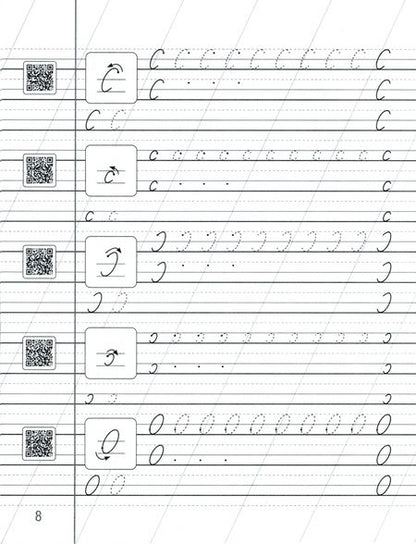 С С С С С С С С С С С
С . . . С
С С С
с с с с с с с с с с с
с . . . с
с с с
Ɔ Ɔ Ɔ Ɔ Ɔ Ɔ Ɔ Ɔ Ɔ Ɔ Ɔ
Ɔ . . . Ɔ
Ɔ Ɔ Ɔ
ɔ ɔ ɔ ɔ ɔ ɔ ɔ ɔ ɔ ɔ ɔ
ɔ . . . ɔ
ɔ ɔ ɔ
О О О О О О О О О О О
О . . . О
О О О
8